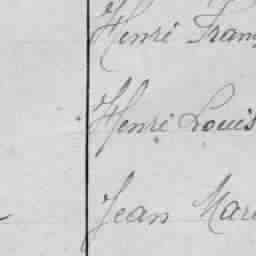 Henri Fran
Henri Louis
Jean Mari